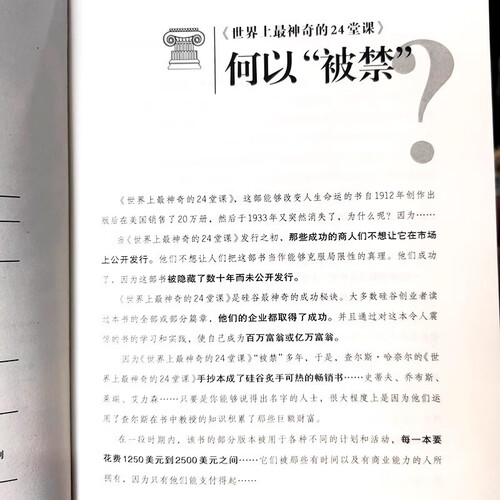 《世界上最神奇的24堂课》
何以“被禁”?
《世界上最神奇的24堂课》，这部能够改变人生命运的书自1912年创作出
版后在美国销售了20万册，然后于1933年又突然消失了，为什么呢？因为……
当《世界上最神奇的24堂课》发行之初，那些成功的商人们不想让它在市场
上公开发行。他们不想让人们把这部书当作能够克服局限性的真理。他们成功
了，因为这部书被隐藏了数十年而未公开发行。
《世界上最神奇的24堂课》是硅谷最神奇的成功秘诀。大多数硅谷创业者读
过本书的全部或部分篇章，他们的企业都取得了成功。并且通过对这本令人震
惊的书的学习和实践，使自己成为百万富翁或亿万富翁。
因为《世界上最神奇的24堂课》“被禁”多年，于是，查尔斯·哈奈尔的《世
界上最神奇的24堂课》手抄本成了硅谷炙手可热的畅销书……史蒂夫、乔布斯、
莱瑞、艾力森……只要是你能够说得出名字的人士，很大程度上是因为他们运
用了查尔斯在书中教授的知识积累了那些巨额财富。
在一段时期内，该书的部分版本被用于各种不同的计划和活动，每一本要
花费1250美元到2500美元之间……它们被那些有时间以及有商业能力的人所
拥有，因为只有他们能支付得起……
则